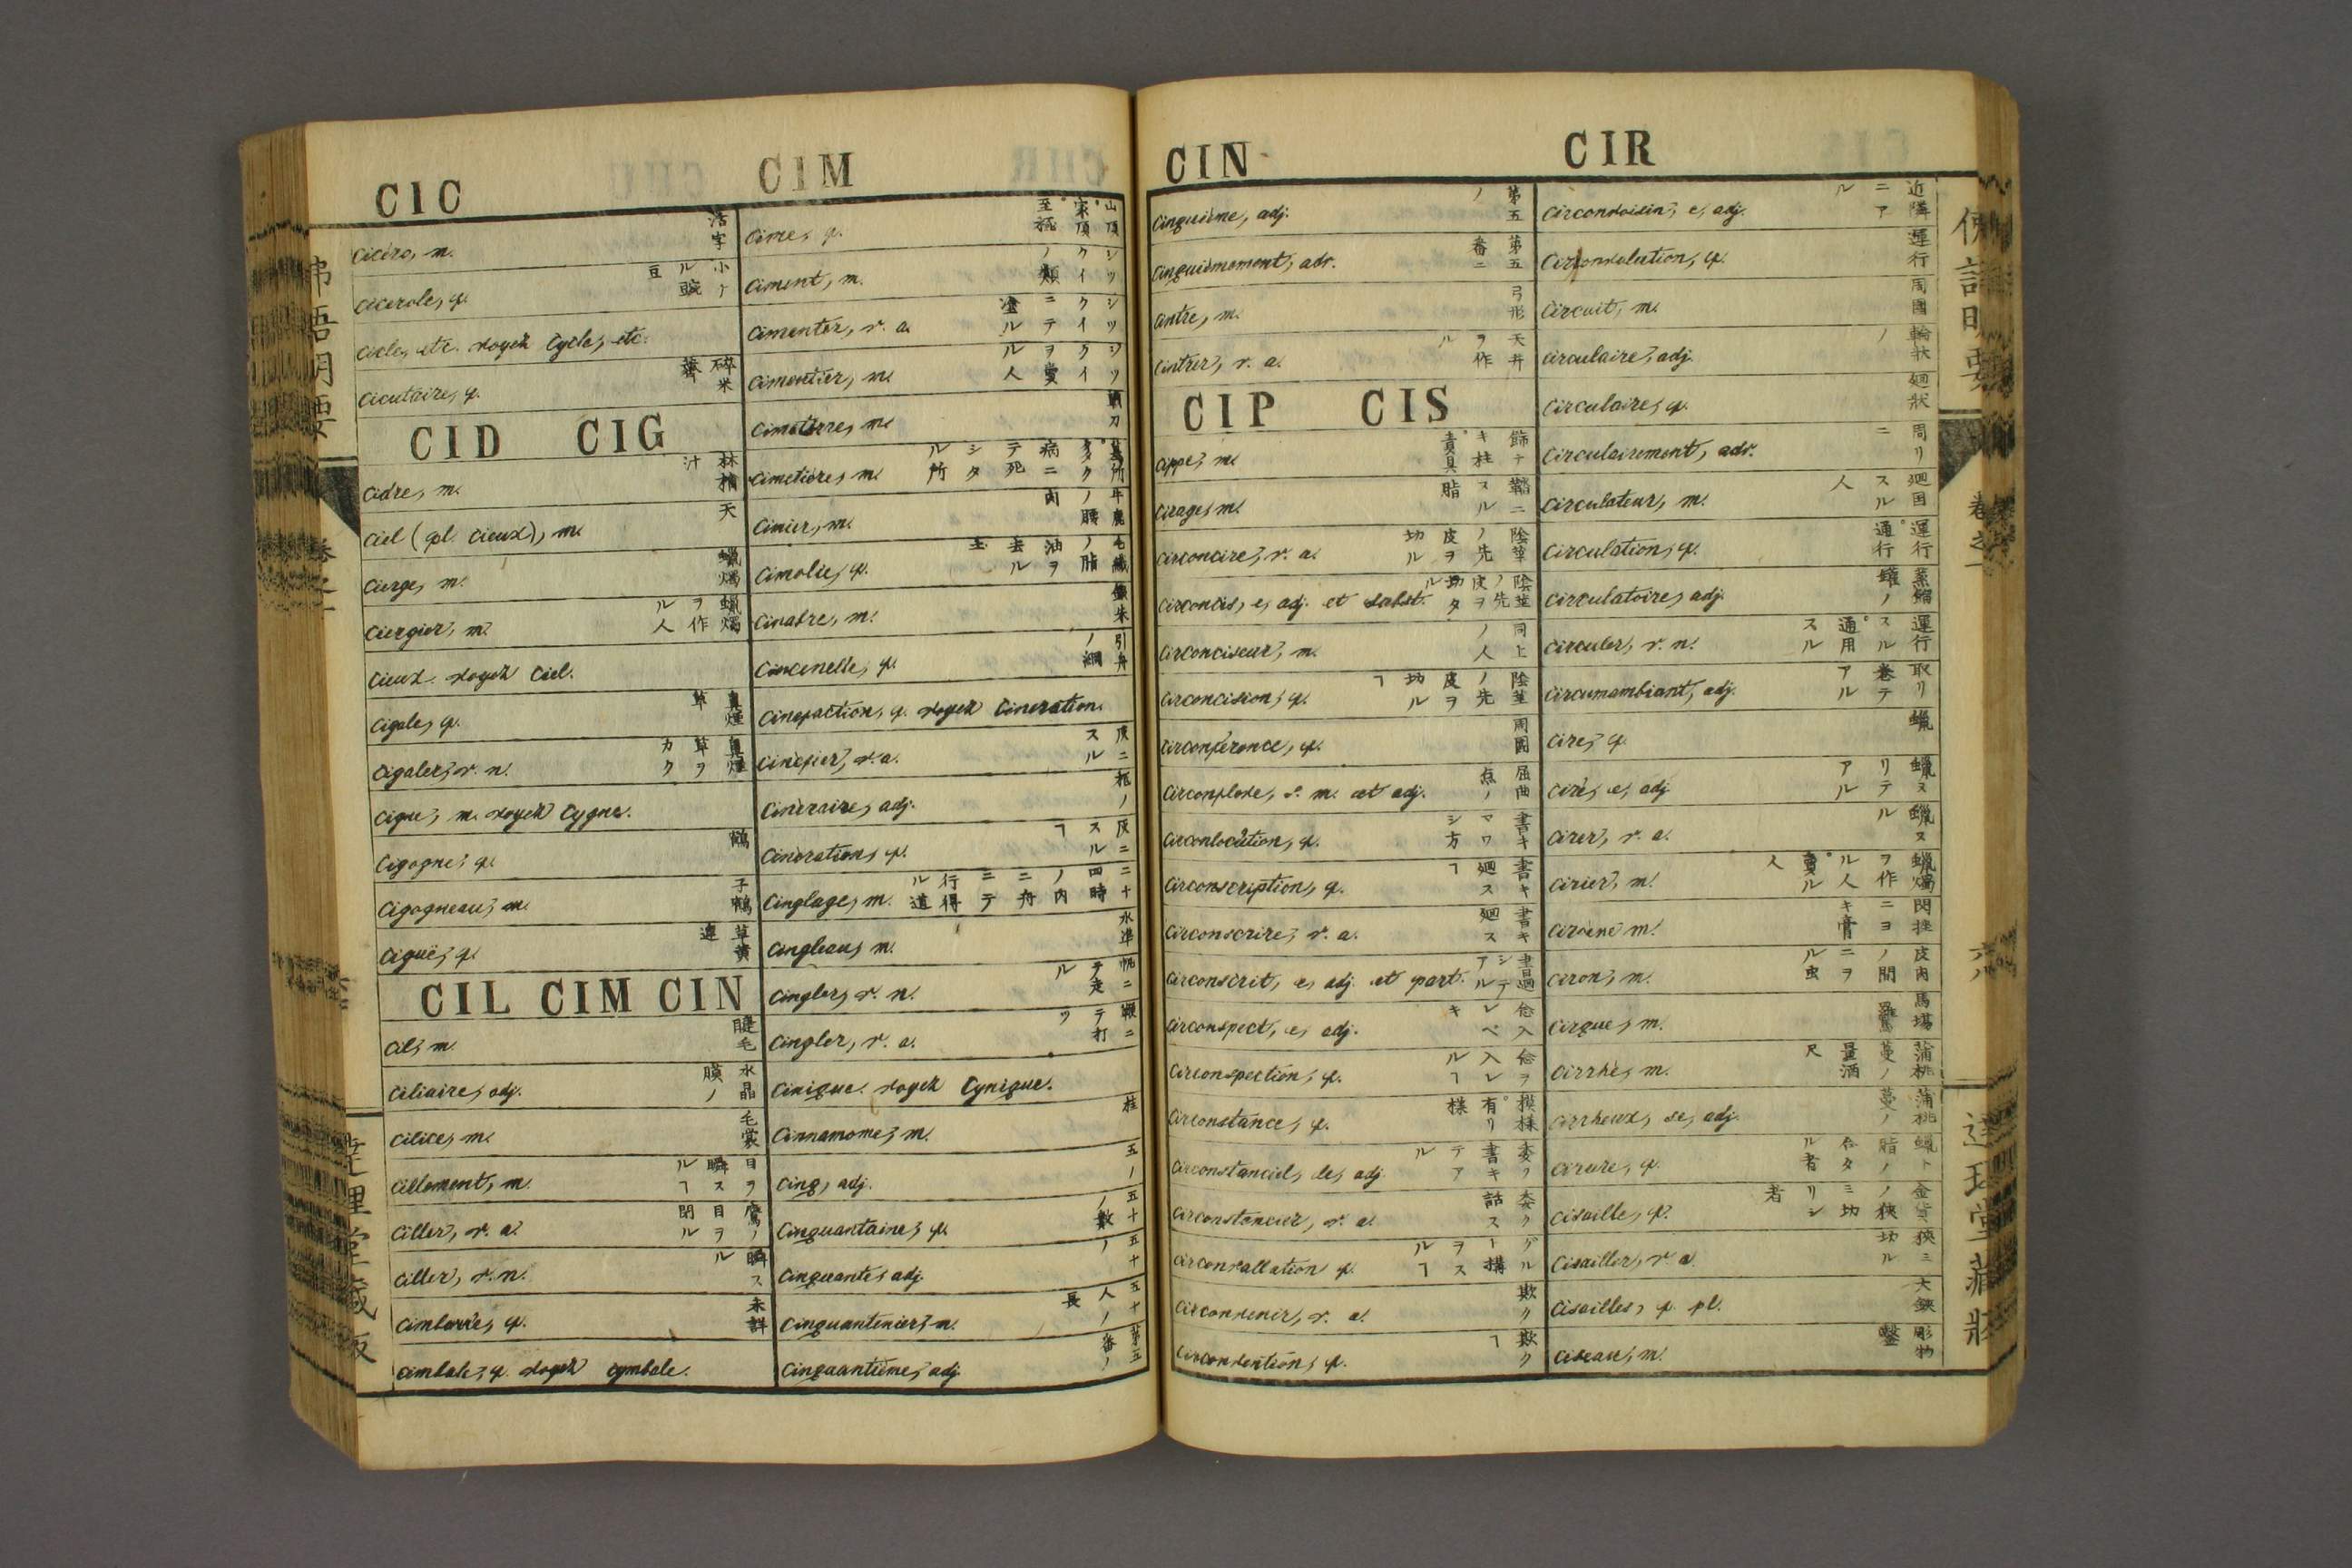 CIC
CIM
Cicéro, m. 活字
Cicerole, f. 小ナル豌豆
Cicle, etc. voyez Cycle, etc.
Cicutaire, f. 碎米薺
CID CIG
Cidre, m. 林檎汁
Ciel (pl. Cieux), m. 天
Cierge, m. 蝋燭
Ciergier, m. 蝋燭ヲ作ル人
Cieux. voyez Ciel.
Cigale, f.
Cigaler, v. n.
Cigne, m. voyez Cygne.
Cigogne, f. 鶴
Cigogneau, m. 子鶴
Ciguë, f. 草黄連
CIL CIM CIN
Cil, m. 睫毛
Ciliaire, adj. 水晶膜ノ
Cilice, m. 毛裳
Cillement, m. 目ヲ瞬スルヿ
Ciller, v. a. 鷹ノ目ヲ閉ル
Ciller, v. n. 瞬スル
Cimbarie, f. 未詳
Cimbale, f. voyez Cymbale.
Cime, f. 山頂。家頂。至極
Ciment, m. シツクイノ類
Cimenter, v. a. シツクイニテ塗ル
Cimentier, m. シツクイヲ賣ル人
Cimeterre, m.
Cimetière, m. 墓所。多ク病ニテ死シタル所
Cimier, m. 牛鹿ノ腰肉
Cimolie, f. 毛織ノ脂油ヲ去ル土
Cinabre, m. 銀朱
Cincenelle, f. 引舟ノ綱
Cinefaction, f. voyez Cineration.
Cinéfier, v. a. 灰ニスル
Cinéraire, adj. 灰ノ
Cinération, f. 灰ニスルヿ
Cinglage, m. 二十四時ノ内ニ舟ニテ行得ル道
Cingleau, m. 水準
Cingler, v. n. 帆ニテ走ル
Cingler, v. a. 鞭ニテ打ツ
Cinique. voyez Cynique.
Cinnamome, m. 桂
Cinq, adj. 五ノ
Cinquantaine, f. 五十ノ數
Cinquante, adj. 五十ノ
Cinquantenier, m. 五十人ノ長
Cinquantième, adj. 第五番ノ
CIN
CIR
Cinquième, adj. 第五ノ
Cinquièmement, adv. 第五番ニ
Cintre, m. 弓形
Cintrer, v. a. 天井ヲ作ル
CIP CIS
Cippe, m.
Cirage, m. 鞜ニスル脂
Circoncire, v. a. 陰莖ノ先皮ヲ切ル
Circoncis, e, adj. et subst. 陰莖ノ先皮ヲ切タル
Circonciseur, m. 同上ノ人
Circoncision, f. 陰莖ノ先皮ヲ切ルヿ
Circonférence, f. 周圍
Circonflexe, s. m. et adj. 屈曲ノ点
Circonlocution, f. 書キマワシ方
Circonscription, f. 書キ廻スヿ
Circonscrire, v. a. 書キ廻ス
Circonscrit, e, adj. et part. 書廻シテアル
Circonspect, e, adj. 念入レベキ
Circonspection, f. 念ヲ入レルヿ
Circonstance, f. 模様。有リ様
Circonstanciel, le, adj. 委ク書キテアル
Circonstancier, v. a. 委ク話ス
Circonvallation, f.
Circonvenir, v. a. 欺ク
Circonvention, f. 欺クヿ
Circonvoisin, e, adj. 近隣ニアル
Circonvolution, f. 運行
Circuit, m. 周圍
Circulaire, adj. 輪狀ノ
Circulaire, f. 廻狀
Circulairement, adv. 周リニ
Circulateur, m. 廻国スル人
Circulation, f. 運行。通行
Circulatoire, adj. 蒸餾罐ノ
Circuler, v. n. 運行スル。通用スル
Circumambiant, adj. 取リ巻テアル
Cire, f. 蝋
Ciré, e, adj. 蝋ヌリテアル
Cirer, v. a. 蝋ヌル
Cirier, m. 蝋燭ヲ作ル人。賣ル人
Ciroène, m. 閃挫ニヨキ膏
Ciron, m. 皮肉ノ間ニヲル虫
Cirque, m. 馬場
Cirrhe, m.
Cirrheux, se, adj. 蒲桃蔓ノ
Cirure, f. 蝋ト脂ノ合タル者
Cisaille, f.
Cisailler, v. a. 狹ミ切ル
Cisailles, f. pl. 大鋏
Ciseau, m. 彫物鑿
佛語明要
卷之一
達理堂藏版